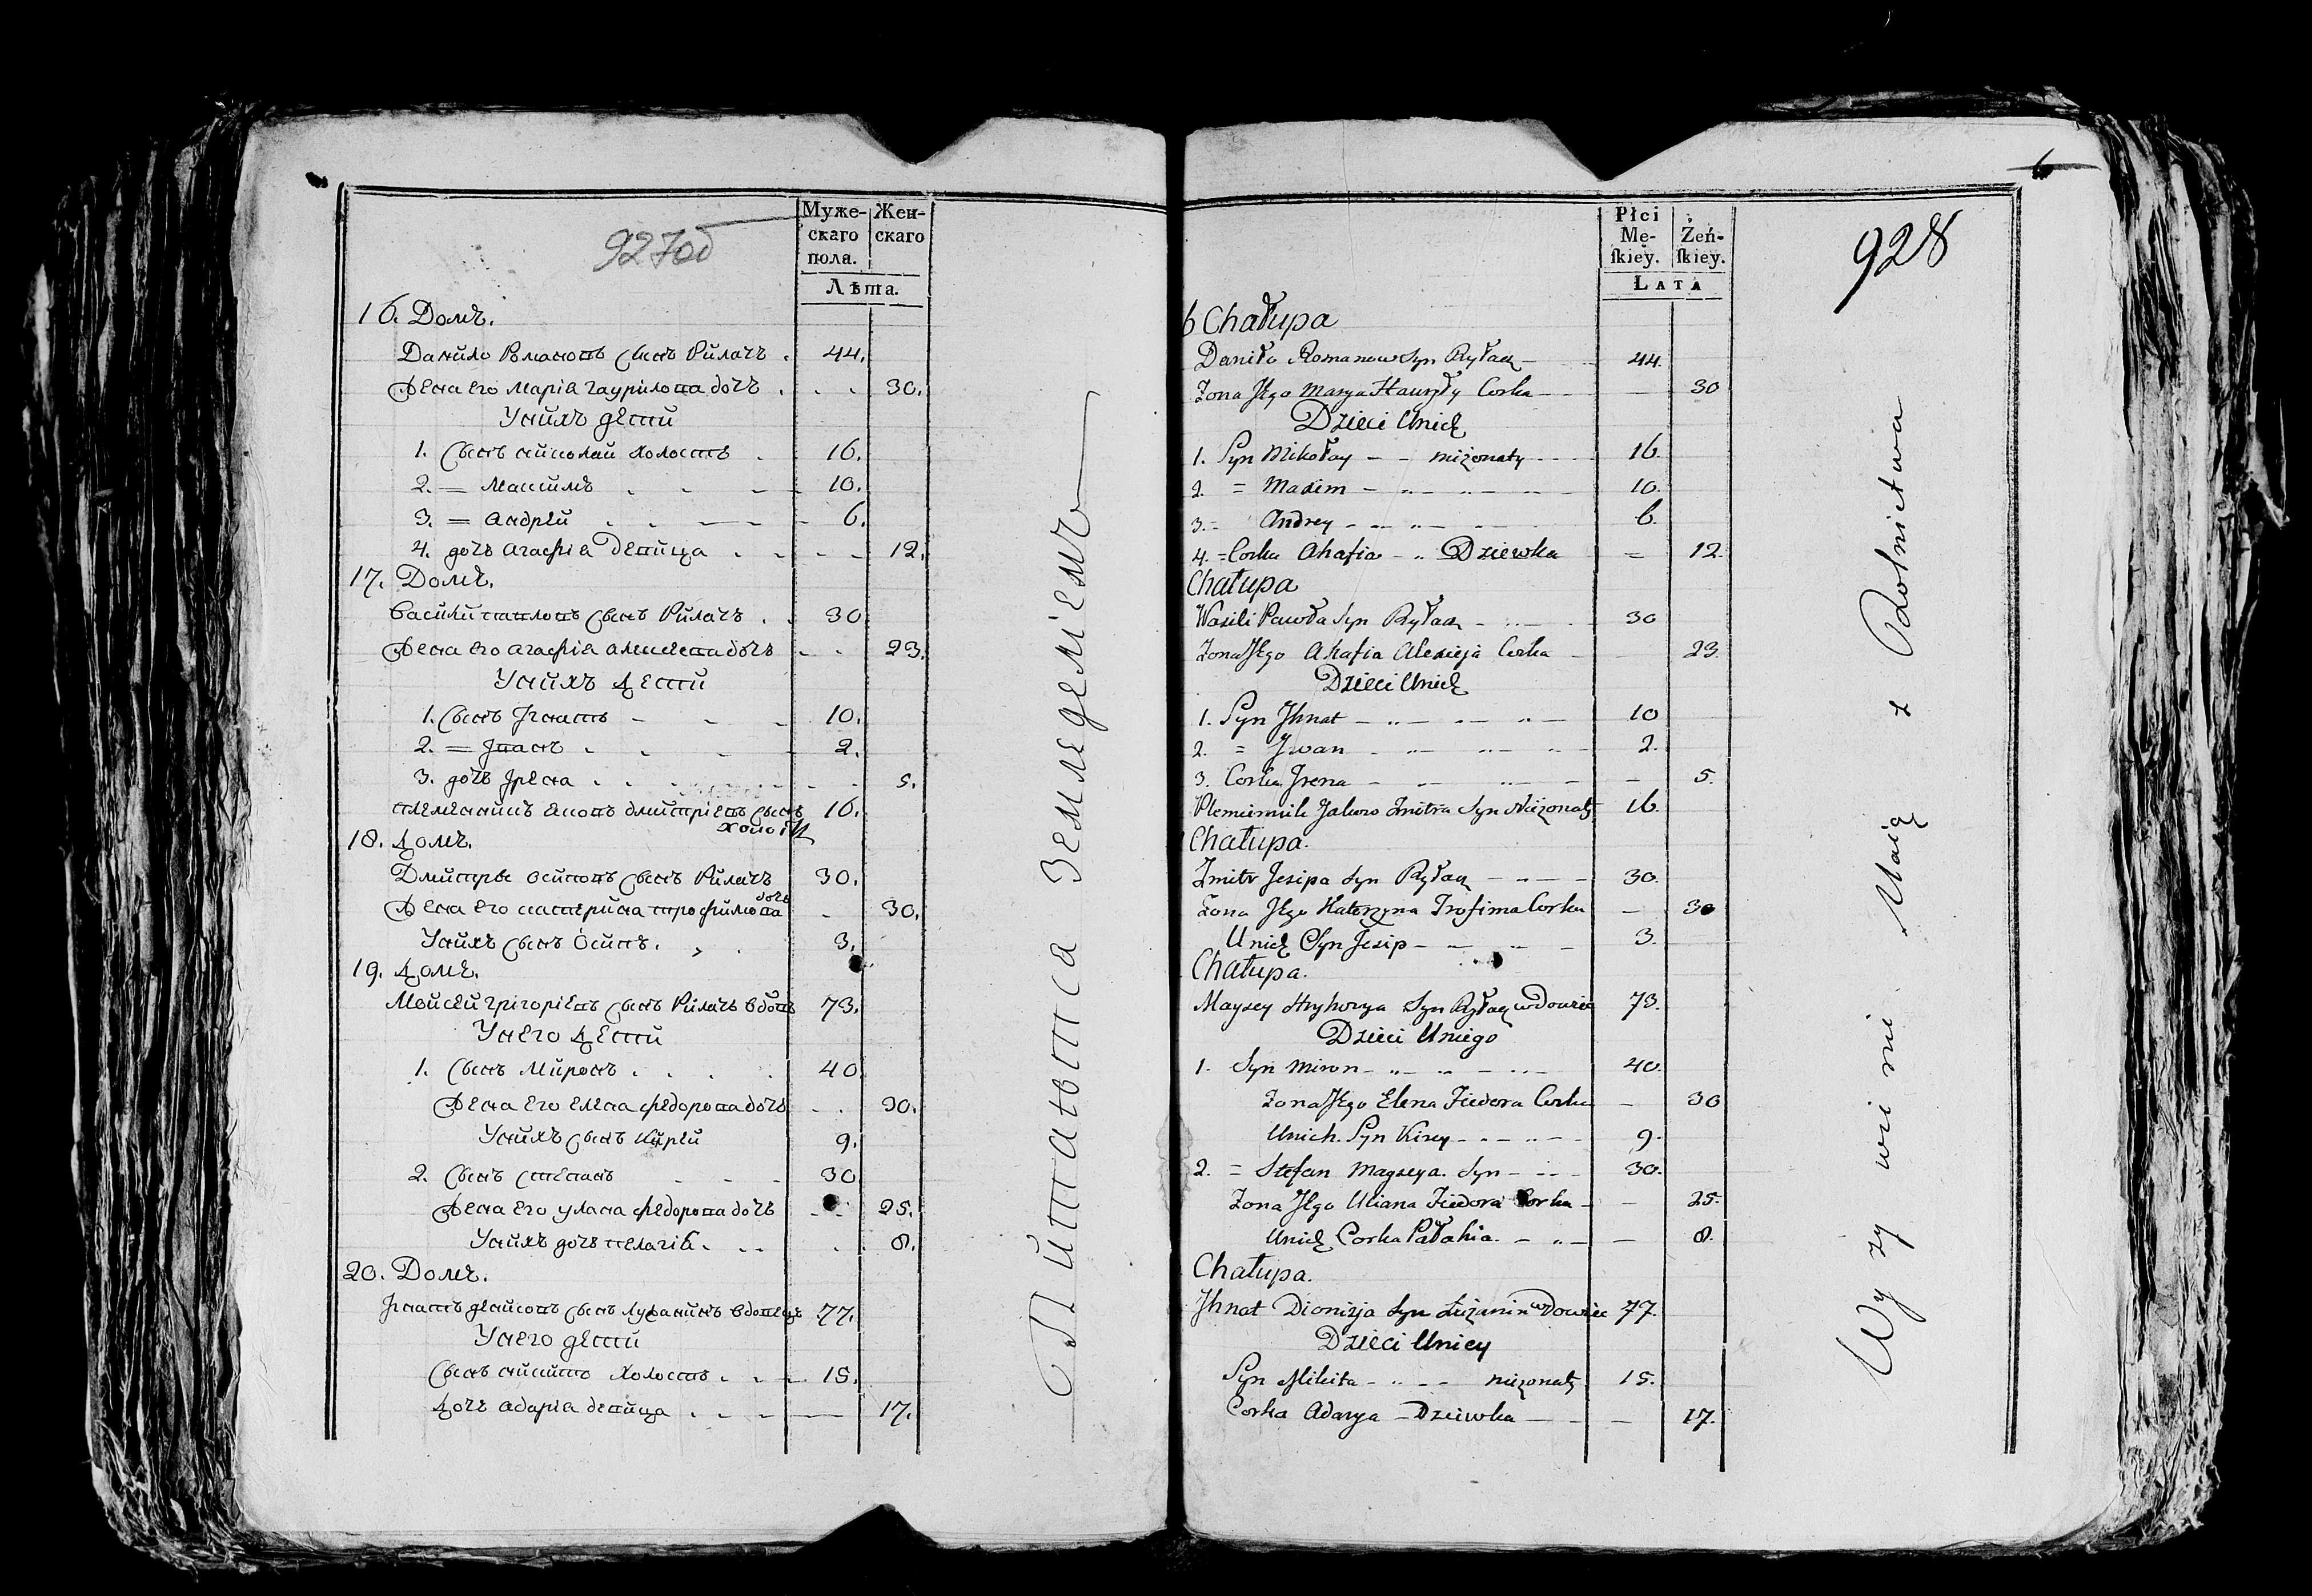 927об
Муже-
скаго
пола.
Жен-
скаго
Лѣта.
16. Домъ.
Данило Романовъ сынъ Рилачъ 44.
Жена его Марія Гаурилова дочъ 30.
У нихъ дети
1. Сынъ Николай холостъ 16.
2. = Максимъ 10.
3. = Андрей 6.
4. дочъ Агафія девица 12.
17. Домъ.
Василий Павловъ сынъ Рилачъ 30
Жена его Агафія Алексева дочъ 23.
У нихъ дети
1. Сынъ Ігнатъ 10.
2. = Іванъ 2.
3. дочъ Ірена 5.
племенникъ Яковъ Дмитріевъ сынъ 16.
18. Домъ.
Дмитры Осиповъ сынъ Рилачъ 30.
Жена его Катерина Трофимова дочъ 30.
У нихъ сынъ Осипъ. 3.
19. Домъ.
Мойсей Григоріевъ сынъ Рилачъ вдовъ 73.
У него дети
1. Сынъ Миронъ 40
Жена его Елена Федорова дочъ 30.
У нихъ сынъ Кирей 9.
2. Сынъ Степанъ 30
Жена его Уляна Федорова дочъ 25.
У нихъ дочъ Пелагія. 8.
20. Домъ.
Ігнатъ Денисовъ сынъ Лужанинъ вдовецъ 77.
У него дети
Сынъ Никита холостъ 15.
Дочъ Адарія девица 17.
Питаются Земледеліемъ
Płci
Mę-
ſkiey.
Żeń-
ſkiey.
LATA
928
6 Chałupa
Daniło Romanow Syn Ryłacz 44.
Zona Jego Marya Hauryły Corka 30
Dzieci Unich
1. Syn Mikołay niżonaty 16.
2. = Maxim 10.
3. = Andrey 6.
4. = Corka Ahafia Dziewka 12.
Chałupa
Wasili Pawła Syn Ryłacz 30
Zona Jego Ahafia Alexieja Corka 23.
Dzieci Unich
1. Syn Jhnat 10
2. = Jwan 2.
3. Corka Jrena 5.
Plemiennik Jakow Zmitra Syn Niżonaty 16.
Chałupa.
Zmitr Jesipa Syn Ryłacz 30.
Zona Jego Katerzyna Trofima Corka 30
Unich Syn Jesip 3.
Chałupa.
Maysey Hryhorya Syn Ryłacz wDowiec 73.
Dzieci Uniego
1. Syn Miron 40.
Zona Jego Elena Fiedora Corka 30
Unich Syn Kirey 9.
2. = Stefan Mayseya Syn 30.
Zona Jego Uliana Fiedora Corka 25.
Unich Corka Pałahia. 8.
Chałupa.
Jhnat Dionizja Syn Łużanin wDowiec 77.
Dzieci Uniey
Syn Mikita niżonaty 15.
Corka Adarya Dziewka 17.
Wy zy wi ni Maią z Rolnictwa